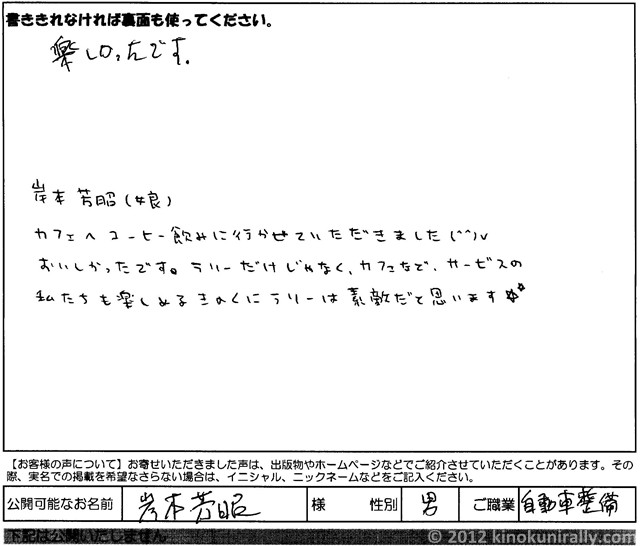 書ききれなければ裏面も使ってください。
楽しかったです。
岸本 芳昭 (娘)
カフェへ コーヒー飲みに行かせていただきました(^^)v
おいしかったです。ラリーだけじゃなく、カフェなど、サービスの
私たちも楽しめるきのくにラリーは素敵だと思います☆☆
【お客様の声について】お寄せいただきました声は、出版物やホームページなどでご紹介させていただくことがあります。その
際、実名での掲載を希望なさらない場合は、イニシャル、ニックネームなどをご記入ください。
公開可能なお名前 岸本芳昭 様 性別 男 ご職業 自動車整備
下記は公開いたしません
© 2012 kinokunirally.com